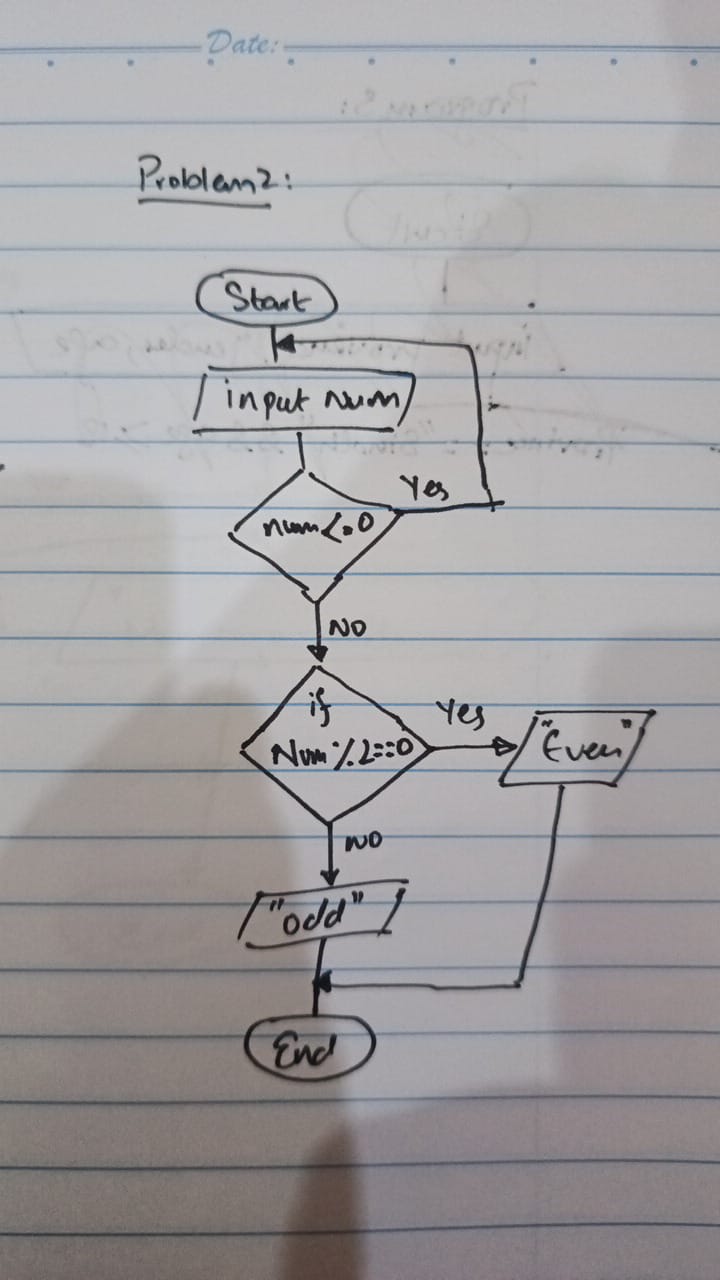 Date:
Problem2:
Start
input Num
Yes
num<=0
NO
if
Num%2==0
Yes
"Even"
NO
"odd"
End